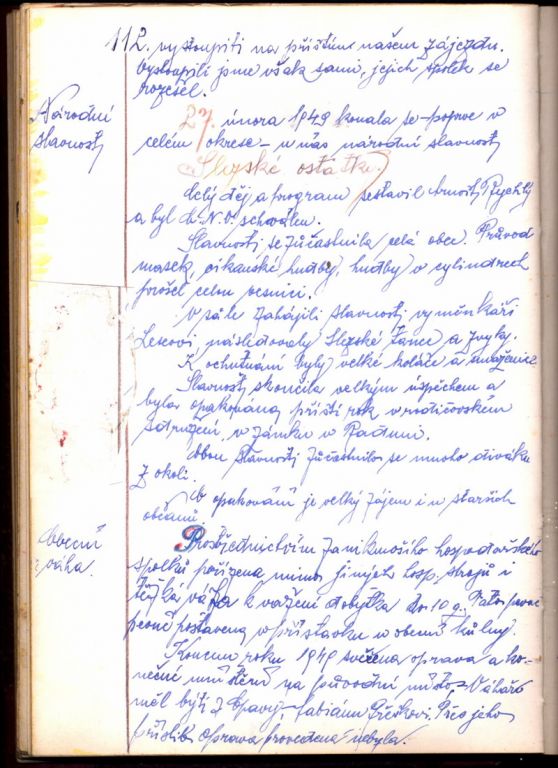 112. vystoupiti na příštím našem zájezdu.
Vystoupili jsme však sami, jejich spolek se
rozešel.
Národní
slavnosti
27. února 1949 konala se poprve v
celém okrese – u nás národní slavnost
Slezské ostatky
Celý děj a program sestavil Arnošt Rychlý
a byl M.N.V. schválen.
Slavnosti se zúčastnila celá obec. Průvod
masek, cikánské hudby, hudby v cylindrech
prošel celou vesnicí.
V sále zahájili slavnosti výměnkáři
následovaly Slezské tance a zvyky.
K ochutnání byly velké koláče a smaženice.
Slavnost skončila velkým úspěchem a
byla opakována příští rok v rodičovském
sdružení, v zámku v Raduni.
Obou slavností zúčastnilo se mnoho diváků
z okolí.
O opakování je velký zájem i u starších
občanů.
Obecní
váha.
Prostřednictvím zaniknuvšího hospodářského
spolku pořízena mimo jiných hosp. strojů i
těžká váha k vážení dobytka do 10 q. Tato
postavena v přístavku u obecní kůlny.
Koncem roku 1949 svěřena oprava a ko-
nečné umístění na původní místo
měl býti z Opavy, Fabiánu
příslib oprava provedena nebyla.